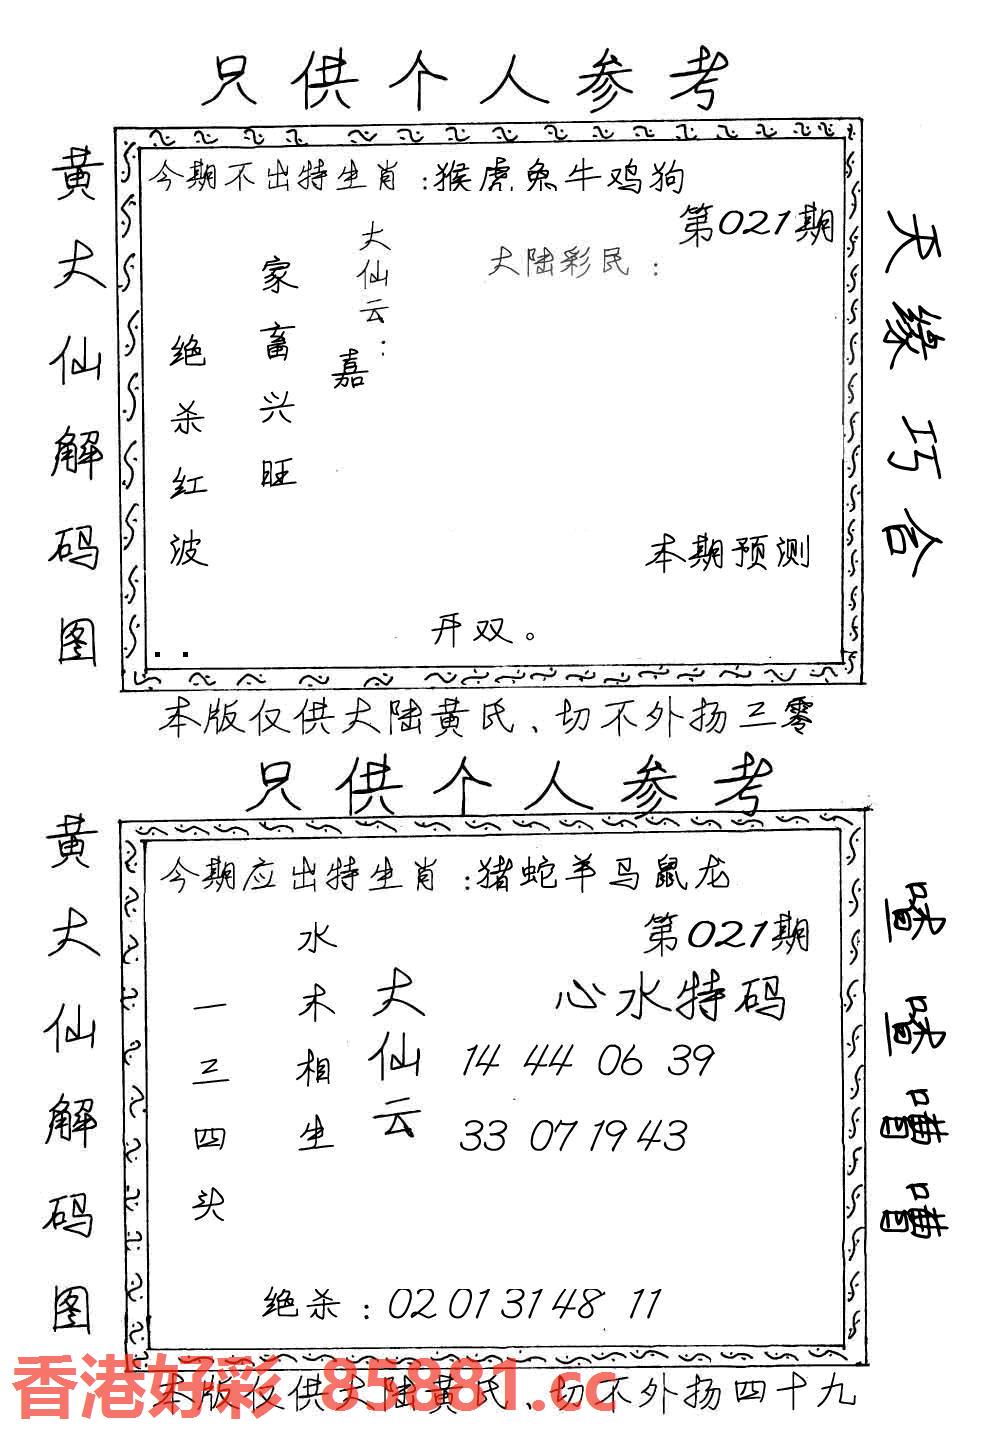 只供个人参考
黄大仙解码图
今期不出特生肖:猴虎兔牛鸡狗
第021期
大陆彩民:
大仙云:
嘉
家畜兴旺
绝杀红波
本期预测
开双。
天缘巧合
本版仅供大陆黄氏、切不外扬三零
只供个人参考
黄大仙解码图
今期应出特生肖:猪蛇羊马鼠龙
第021期
心水特码
大仙云
水木相生
一三四头
14 44 06 39
33 07 19 43
绝杀:02 01 31 48 11
喳喳喵喵
本版仅供大陆黄氏、切不外扬四十九
香港好彩 85881.cc